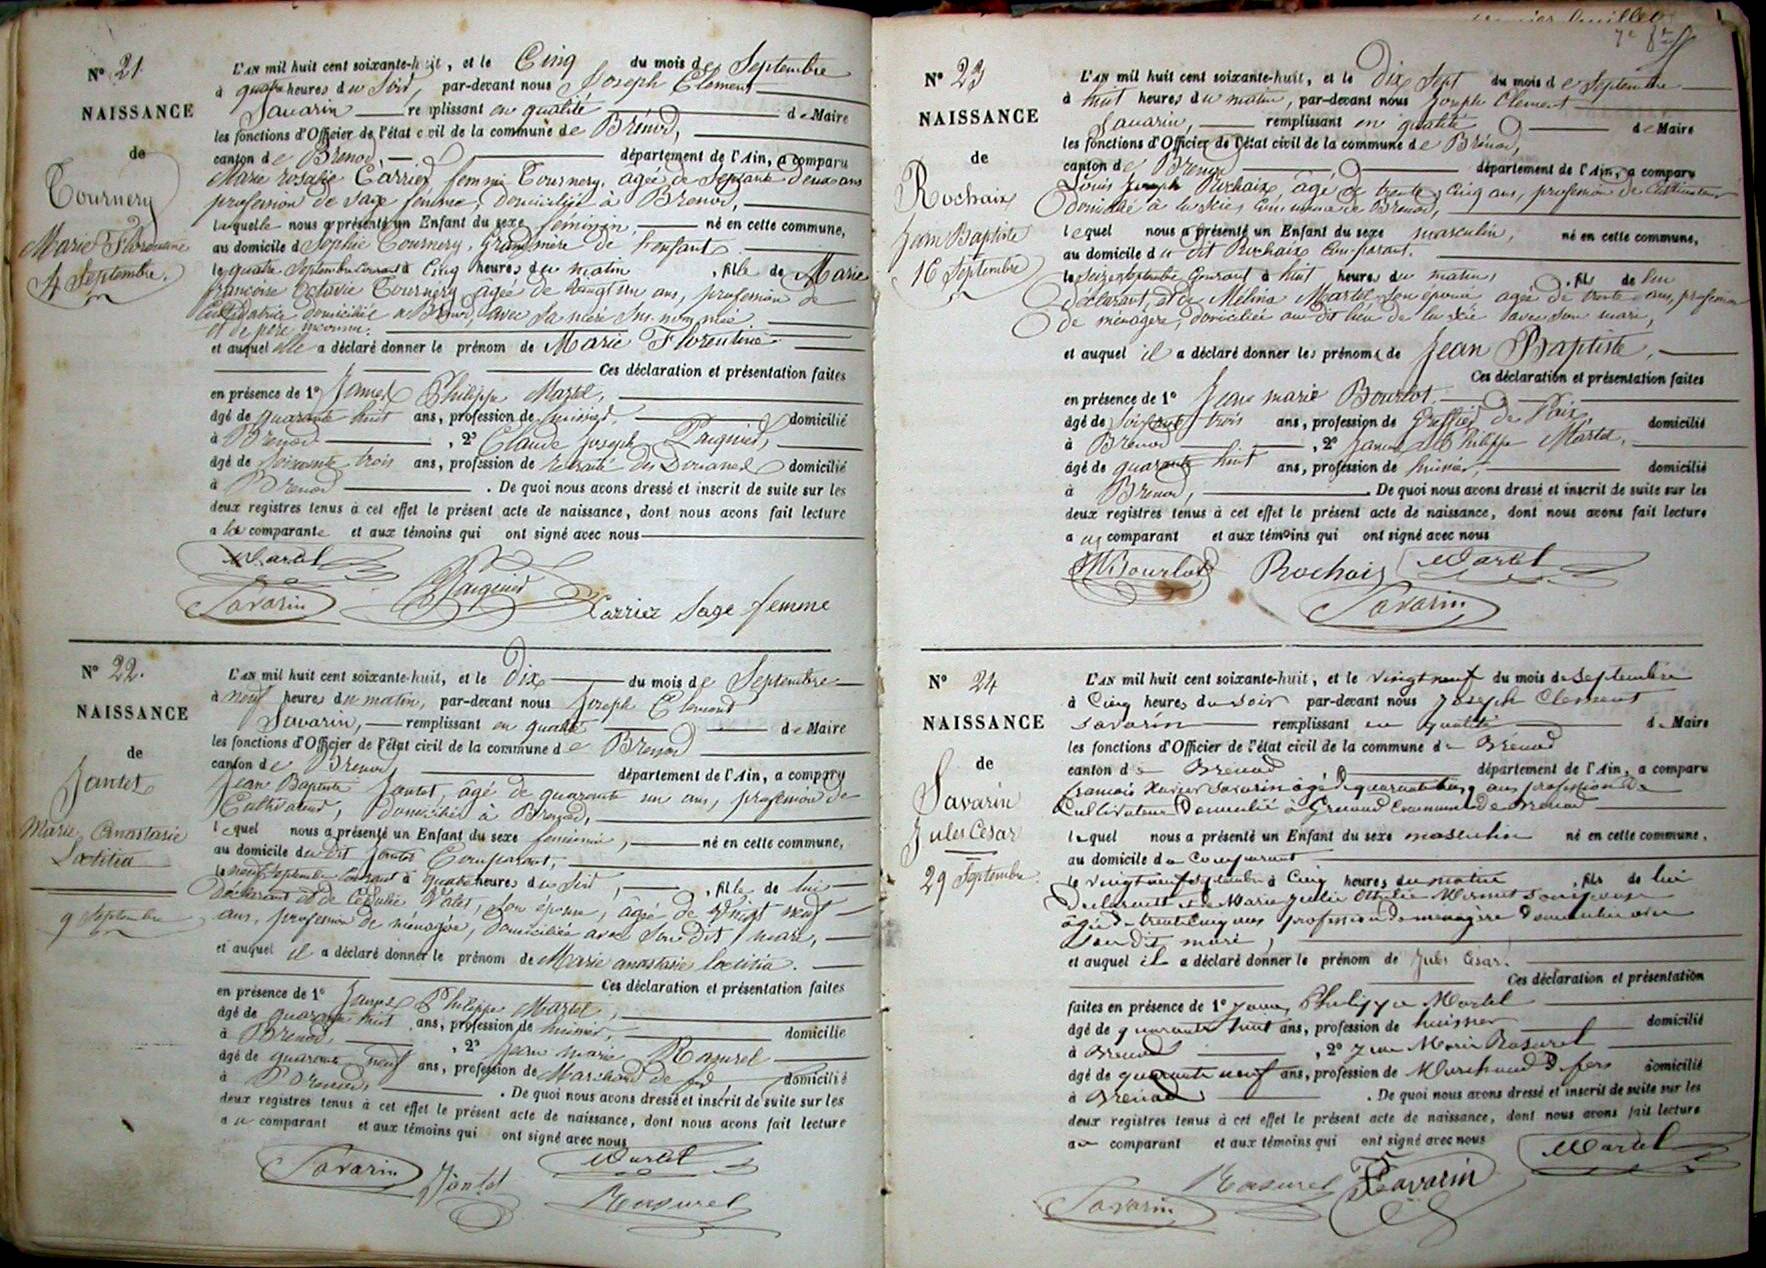 N° 21.
NAISSANCE
de
Tournery
Marie Florentine
4 Septembre.
L'AN mil huit cent soixante-huit, et le Cinq du mois de Septembre
à quatre heures du Soir, par-devant nous Joseph Clement
Savarin remplissant en qualité de Maire
les fonctions d'Officier de l'état civil de la commune de Brénod,
canton de Brenod, département de l'Ain, a comparu
Marie rosalie Carrier femme Tournery, âgée de Septante deux ans
profession de Sage femme, domiciliée à Brenod,
laquelle nous a présenté un Enfant du sexe féminin, né en cette commune,
au domicile de Sophie Tournery, Grand'mère de l'enfant
le quatre Septembre courant à Cinq heures du matin , fille de Marie
françoise Octavie Tournery agée de vingt un ans, profession de
domiciliée à Brenod, avec Sa mère Sus-nommée
et de père inconnu.
et auquel elle a déclaré donner le prénom de Marie Florentine
Ces déclaration et présentation faites
en présence de 1° James Philippe Martel,
âgé de quarante huit ans, profession de huissier, domicilié
à Brenod , 2° Claude Joseph
âgé de soixante trois ans, profession de retraité des Douanes domicilié
à Brenod . De quoi nous avons dressé et inscrit de suite sur les
deux registres tenus à cet effet le présent acte de naissance, dont nous avons fait lecture
a la comparante et aux témoins qui ont signé avec nous
Martel
Savarin
Carrier Sage femme
N° 22.
NAISSANCE
de
Jantet
Marie Anastasie
Lœtitia
9 Septembre
L'AN mil huit cent soixante-huit, et le Dix du mois de Septembre
à neuf heures du matin, par-devant nous Joseph Clement
Savarin, remplissant en qualité de Maire
les fonctions d'Officier de l'état civil de la commune de Brenod
canton de Brenod département de l'Ain, a comparu
Jean Baptiste Jantet, âgé de quarante un ans, profession de
Cultivateur, domicilié à Brenod,
lequel nous a présenté un Enfant du sexe féminin, né en cette commune,
au domicile du dit Jantet Comparant,
le neuf Septembre courant à quatre heures du Soir , fille de lui
Déclarant et de son épouse, âgée de Vingt neuf
ans, profession de ménagère, domiciliée avec Son dit mari,
et auquel il a déclaré donner le prénom de Marie anastasie lœtitia.
Ces déclaration et présentation faites
en présence de 1° James Philippe Martel,
âgé de quarante huit ans, profession de huissier, domicilié
à Brenod, , 2° Jean marie Rasurel
âgé de quarante neuf ans, profession de Marchand de fer domicilié
à Brenod, . De quoi nous avons dressé et inscrit de suite sur les
deux registres tenus à cet effet le présent acte de naissance, dont nous avons fait lecture
a u comparant et aux témoins qui ont signé avec nous
Savarin Jantet Martel
Rasurel
N° 23
NAISSANCE
de
Rochaix
Jean Baptiste
16 Septembre
L'AN mil huit cent soixante-huit, et le Dix Sept du mois de Septembre
à huit heures du matin, par-devant nous Joseph Clement
Savarin, remplissant en qualité de Maire
les fonctions d'Officier de l'état civil de la commune de Brénod,
canton de Brenod département de l'Ain, a comparu
Louis Joseph Rochaix âgé de trente cinq ans, profession de Cultivateur
domicilié à la Scie, Commune de Brenod,
lequel nous a présenté un Enfant du sexe masculin, né en cette commune,
au domicile du dit Rochaix Comparant.
le seize septembre Courant à huit heures du matin, , fils de lui
Déclarant, et de Mélina Martel Son épouse agée de trente ans, profession
de ménagère, domiciliée au dit lieu de la scie avec son mari,
et auquel il a déclaré donner les prénoms de Jean Baptiste.
Ces déclaration et présentation faites
en présence de 1° Jean marie Bourlot
âgé de soixante trois ans, profession de Greffier de Paix domicilié
à Brenod , 2° James Philippe Martel,
âgé de quarante huit ans, profession de huissier, domicilié
à Brenod, . De quoi nous avons dressé et inscrit de suite sur les
deux registres tenus à cet effet le présent acte de naissance, dont nous avons fait lecture
a u comparant et aux témoins qui ont signé avec nous
Bourlot Rochaix Martel
Savarin
N° 24
NAISSANCE
de
Savarin
Jules César
29 Septembre
L'AN mil huit cent soixante-huit, et le Vingt neuf du mois de Septembre
à Cinq heures du soir par-devant nous Joseph Clement
Savarin remplissant en qualité de Maire
les fonctions d'Officier de l'état civil de la commune de Brénod
canton de Brenod département de l'Ain, a comparu
francois Xavier Savarin agé de quarante cinq ans profession de
Cultivateur Domicilié à Commune de Brenod
lequel nous a présenté un Enfant du sexe masculin né en cette commune,
au domicile du Comparant
le vingt neuf septembre à Cinq heures du matin , fils de lui
Declarant et de Marie Julie son épouse
agée de trente cinq ans profession de menagere Domiciliée avec
son dit mari,
et auquel il a déclaré donner le prénom de Jules César.
Ces déclaration et présentation
faites en présence de 1° James Philippe Martel
âgé de quarante huit ans, profession de huissier domicilié
à Brenod , 2° Jean Marie Rasurel
âgé de quarante neuf ans, profession de Marchand de fers domicilié
à Brenod . De quoi nous avons dressé et inscrit de suite sur les
deux registres tenus à cet effet le présent acte de naissance, dont nous avons fait lecture
au comparant et aux témoins qui ont signé avec nous
Martel
Rasurel Savarin
Savarin